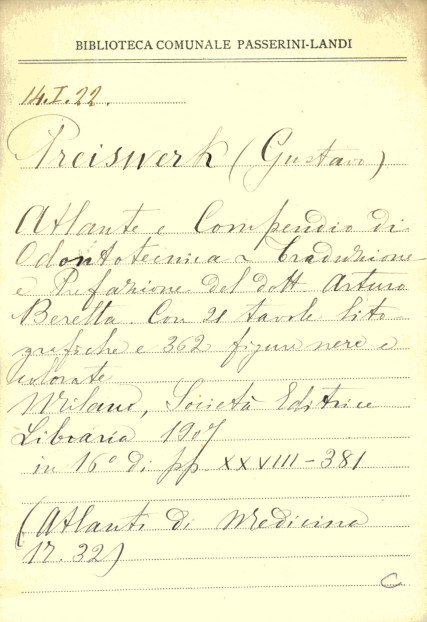 BIBLIOTECA COMUNALE PASSERINI-LANDI
14.I.22.
Preiswerk (Gustavo)
Atlante e Compendio di
Odontotecnica - Traduzione
e Prefazione del dott. Arturo
Beretta. Con 21 tavole lito
grafiche e 362 figure nere e
colorate
Milano, Società Editrice
Libraria 1907
in 16° di pp. XXVIII-381
(Atlanti di Medicina
N. 32)
C